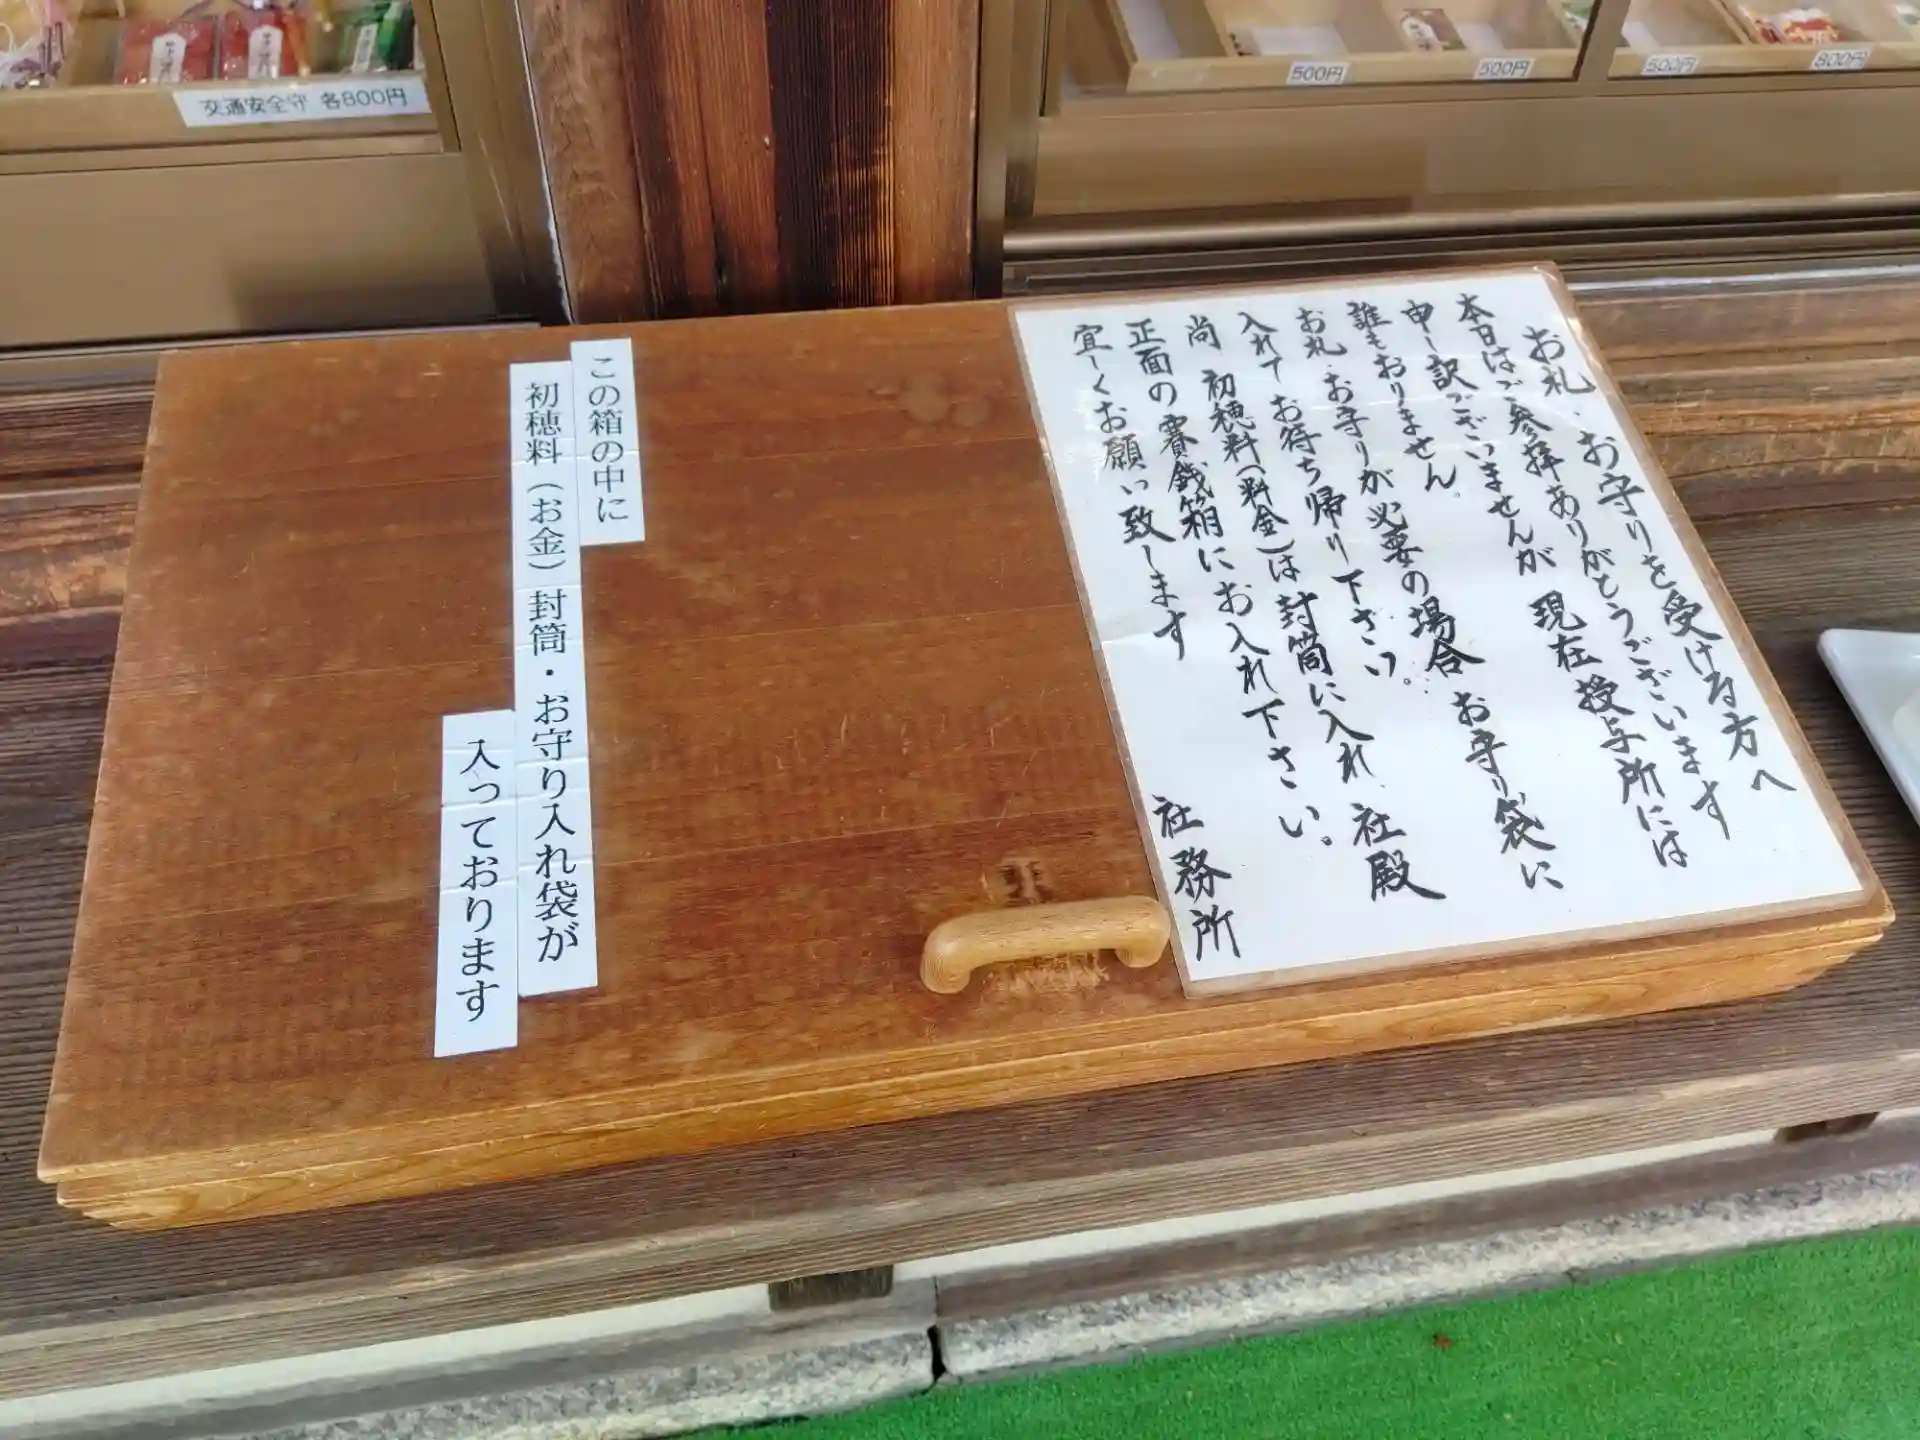 お札・お守りを受ける方へ
本日はご参拝ありがとうございます
申し訳ございませんが 現在授与所には
誰もおりません。
お札・お守りが必要の場合 お守り袋に
入れてお持ち帰り下さい。
尚 初穂料(料金)は封筒に入れ、社殿
正面の賽銭箱にお入れ下さい。
宜しくお願い致します
社務所
この箱の中に
初穂料(お金)封筒・お守り入れ袋が
入っております
交通安全守 各800円
500円
500円
500円
800円